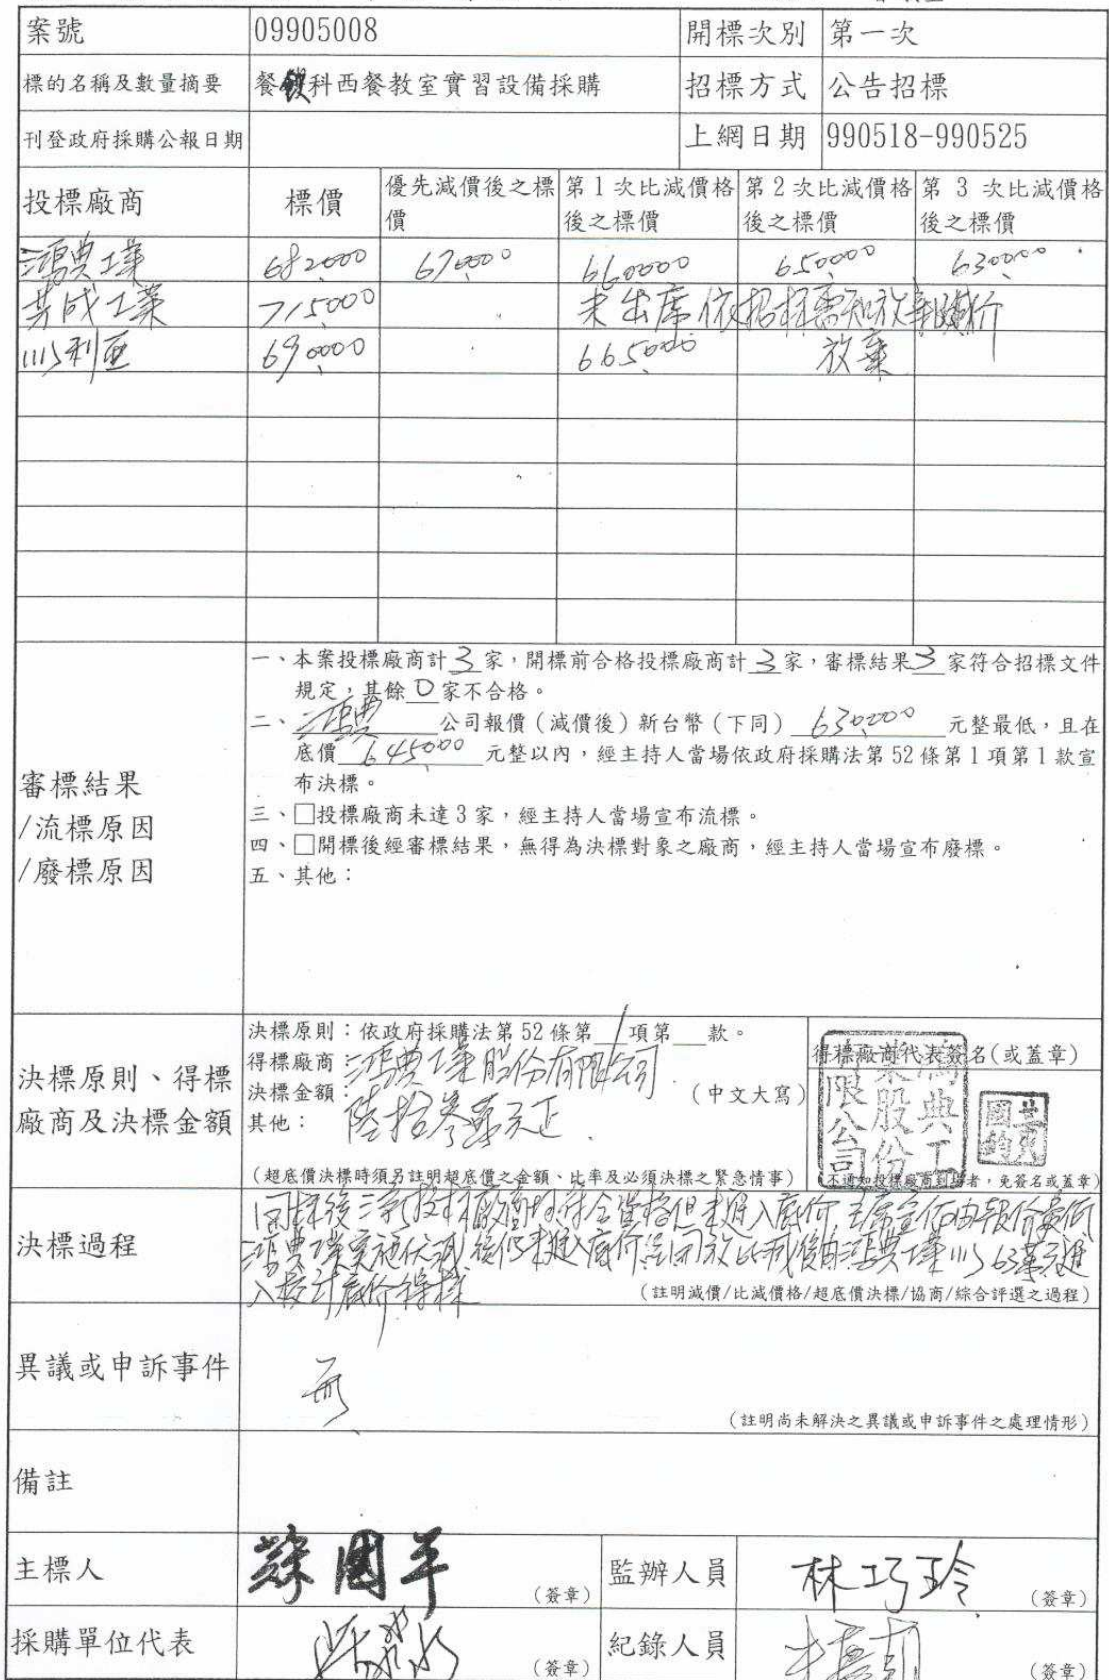 案號 09905008 開標次別 第一次
標的名稱及數量摘要 餐 科西餐教室實習設備採購 招標方式 公告招標
刊登政府採購公報日期 上網日期 990518-990525
投標廠商 標價 優先減價後之標價 第1次比減價格後之標價 第2次比減價格後之標價 第3次比減價格後之標價
鴻典工業 682000 670000 660000 650000 630000
工業 715000 未出席依招標需知放棄
川利亞 690000 665000 放棄
審標結果
/流標原因
/廢標原因
一、本案投標廠商計3家,開標前合格投標廠商計3家,審標結果3家符合招標文件
規定,其餘0家不合格。
二、鴻典公司報價(減價後)新台幣(下同)630000元整最低,且在
底價645000元整以內,經主持人當場依政府採購法第52條第1項第1款宣
布決標。
三、□投標廠商未達3家,經主持人當場宣布流標。
四、□開標後經審標結果,無得為決標對象之廠商,經主持人當場宣布廢標。
五、其他:
決標原則、得標
廠商及決標金額
決標原則:依政府採購法第52條第1項第 款。
得標廠商:鴻典工業股份有限公司
決標金額:陸拾參萬元正(中文大寫)
其他:
(超底價決標時須另註明超底價之金額、比率及必須決標之緊急情事)
得標廠商代表簽名(或蓋章)
典工
業股份
限公司
(不通知投標廠商到場者,免簽名或蓋章)
決標過程
開標後三家投標廠商均符合資格但未進入底价,主席宣佈由報价最低
鴻典工業實施優先減後仍未進入底价 比減後由鴻典工業以63萬元進
入核計底价得標
(註明減價/比減價格/超底價決標/協商/綜合評選之過程)
異議或申訴事件 無
(註明尚未解決之異議或申訴事件之處理情形)
備註
主標人 國羊 (簽章) 監辦人員 林巧玲 (簽章)
採購單位代表 (簽章) 紀錄人員 (簽章)